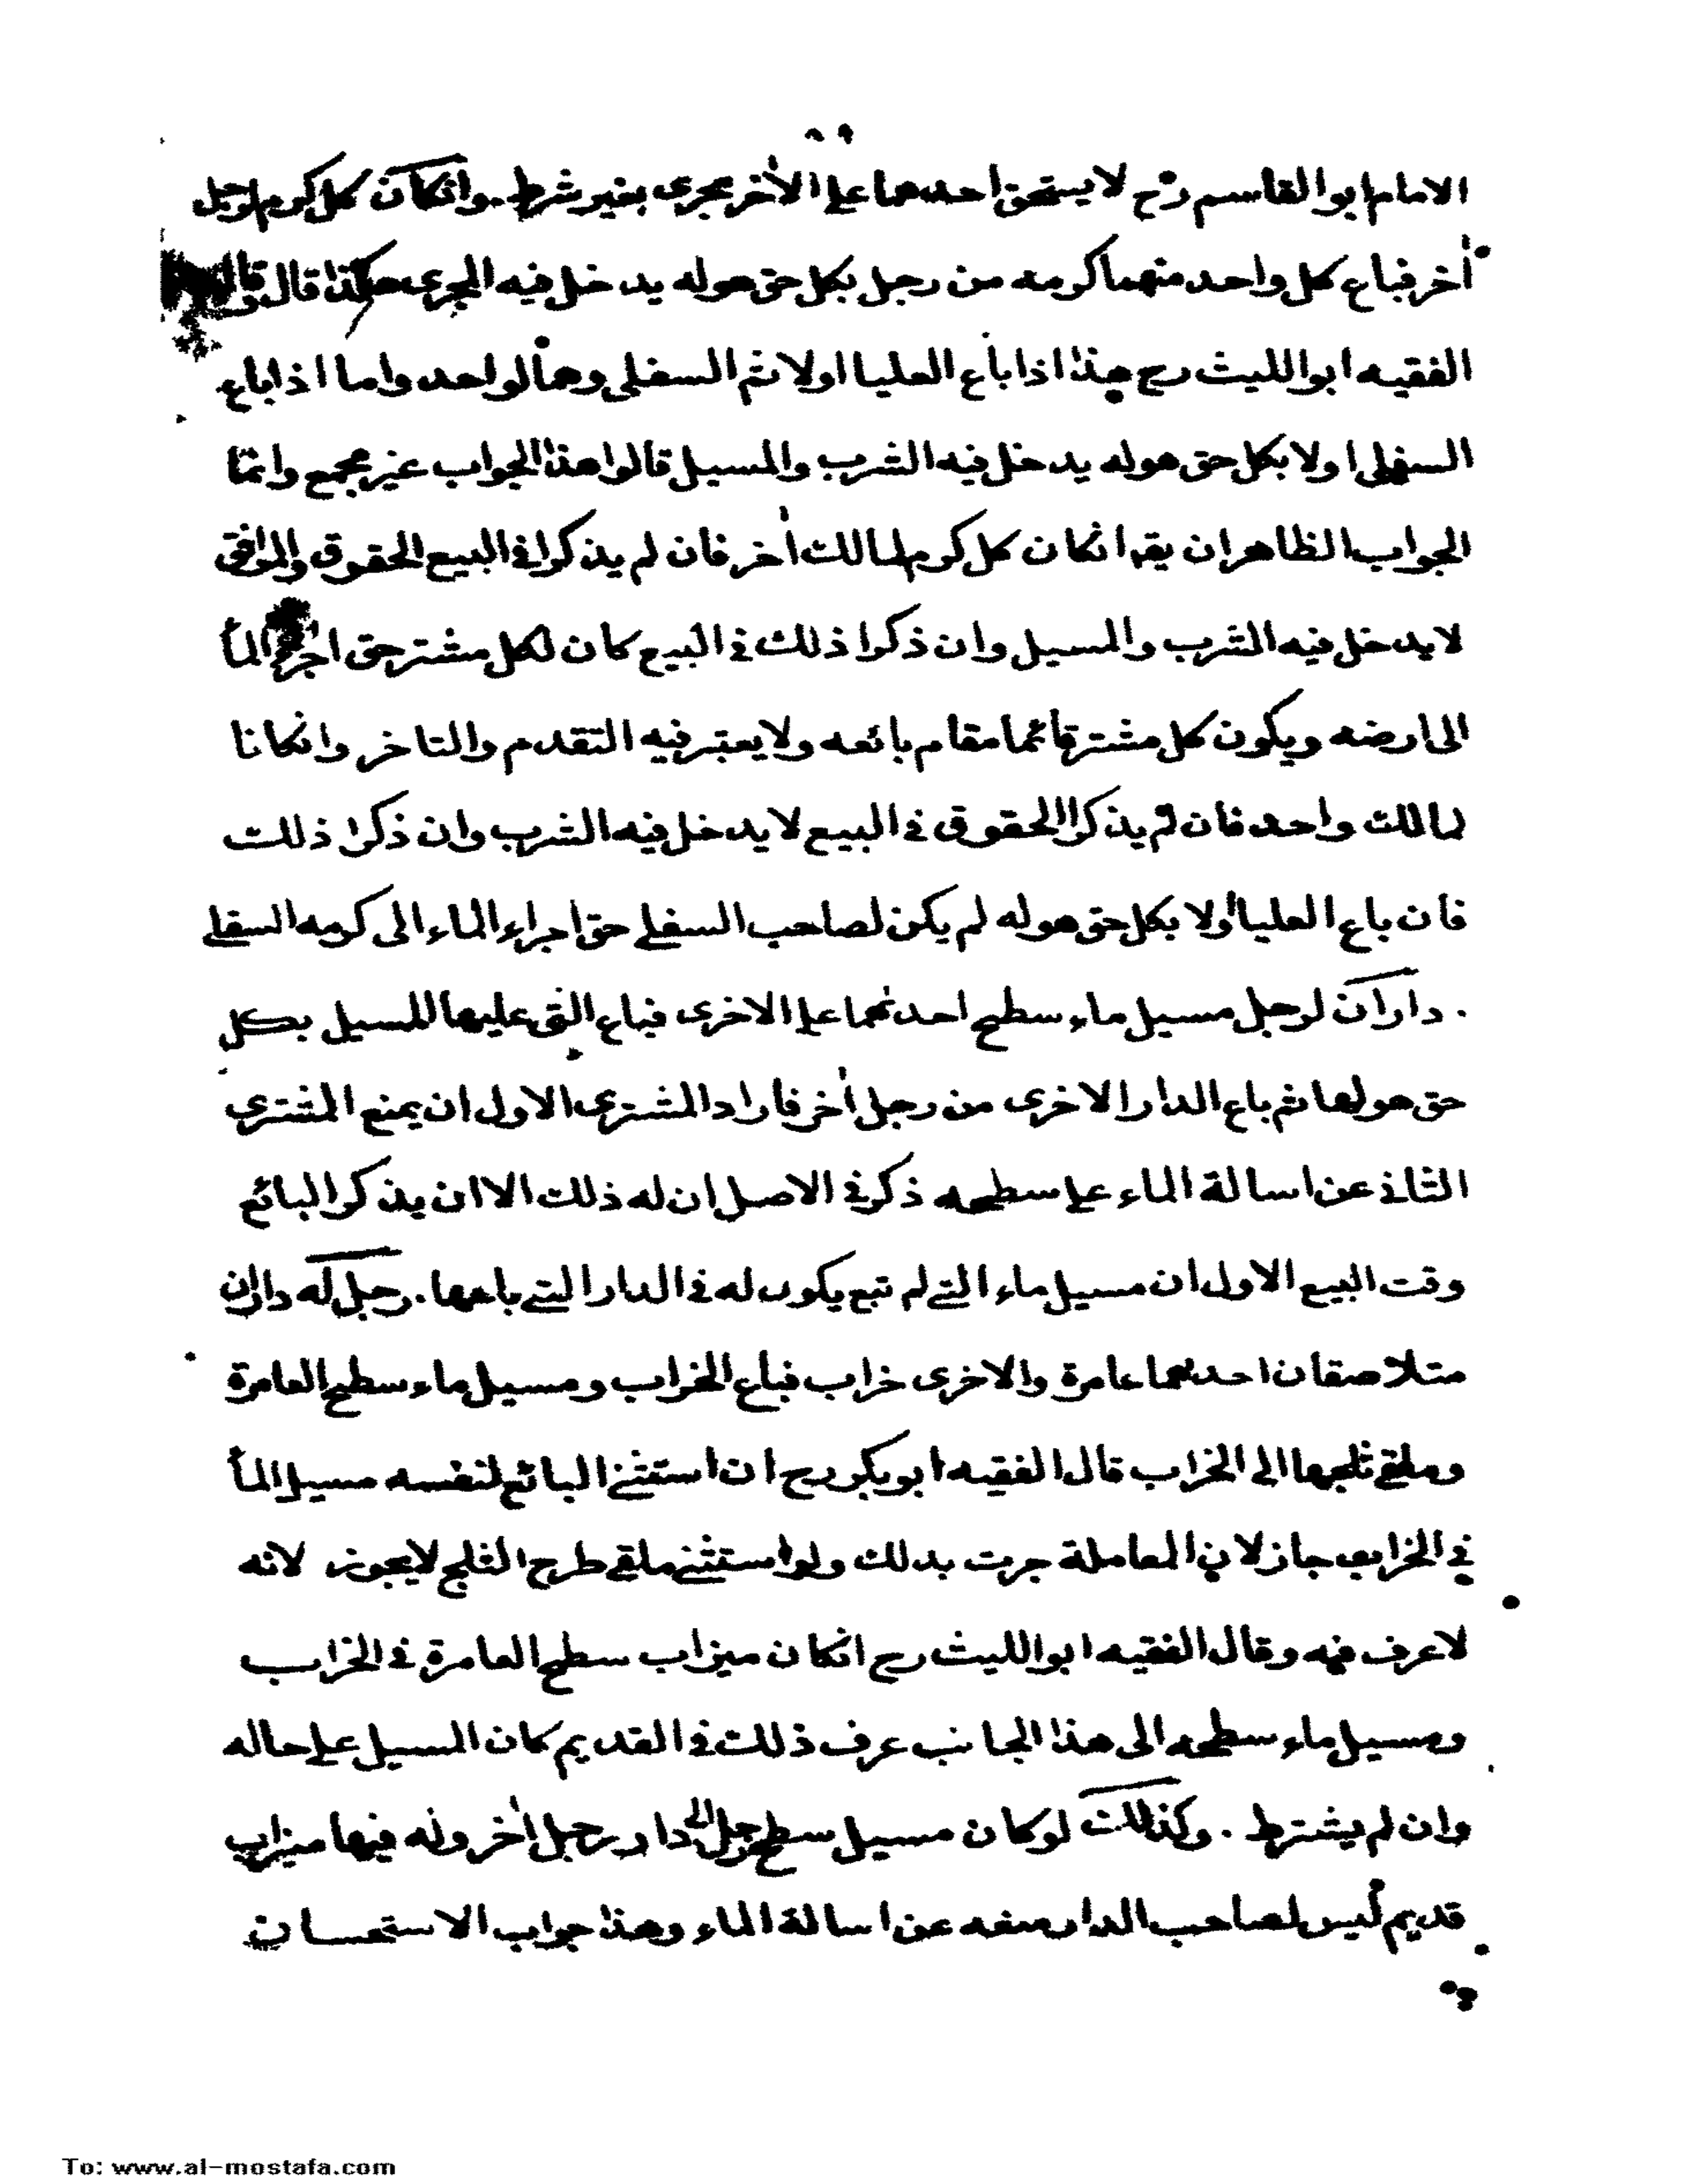 الامام ابو القاسم رح لا يستحق احدهما على الأخر مجرى بغير شرط . وانكان كل كرم لرجل
أخر فباع كل واحد منهما كرمه من رجل بكل حق هوله يدخل فيه المجرى هكذا قال قال
الفقيه ابو الليث رح هذا اذا باع العليا اولا ثم السفلى وهما لواحد واما اذا باع
السفلى اولا بكل حق هوله يدخل فيه الشرب والمسيل قالوا هذا الجواب غير مجمع وانما
الجواب الظاهر ان يقہ انكان كل كرم لمالك أخر فان لم يذكرا في البيع الحقوق والمرافق
لا يدخل فيه الشرب والمسيل وان ذكرا ذلك في البيع كان لكل مشتر حق اجراء المأ
الى ارضه ويكون كل مشتر قائما مقام بائعه ولا يعتبر فيه التقدم والتاخر وانكانا
لمالك واحد فان لم يذكرا الحقوق في البيع لا يدخل فيه الشرب وان ذكرا ذلك
فان باع العليا اولا بكل حق هوله لم يكن لصاحب السفلى حق اجراء الماء الى كرمه السفلى
. داران لرجل مسيل ماء سطح احدهما على الاخرى فباع التى عليها المسيل بكل
حق هولها ثم باع الدار الاخرى من رجل أخر فاراد المشترى الاول ان يمنع المشترى
الثانى عن اسالة الماء على سطحه ذكر في الاصل ان له ذلك الا ان يذكر البائع
وقت البيع الاول ان مسيل ماء التى لم تبع يكون له في الدار التى باعها . رجل له داران
متلاصقان احدهما عامرة والاخرى خراب فباع الخراب ومسيل ماء سطح العامرة
وملقى ثلجها الى الخراب قال الفقيه ابو بكر رح ان استثنى البائع لنفسه مسيل المأ
في الخراب جاز لان المعاملة جرت بذلك ولو استثنى ملقى طرح الثلج لا يجوز لانه
لا عرف فيه وقال الفقيه ابو الليث رح انكان ميزاب سطح العامرة في الخراب
ومسيل ماء سطحه الى هذا الجانب عرف ذلك في القديم كان المسيل على حاله
وان لم يشترط . وكذلك لو كان مسيل سطح رجل الى دار رجل أخر وله فيها ميزاب
قديم ليس لصاحب الدار منعه عن اسالة الماء وهذا جواب الاستحسان
To: www.al-mostafa.com